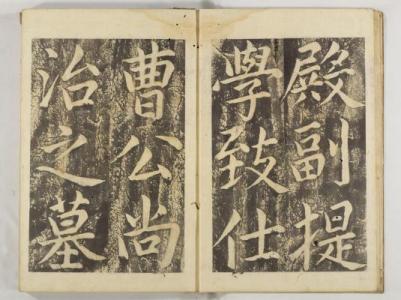 殿副提
學致仕
曹公尚
治之墓